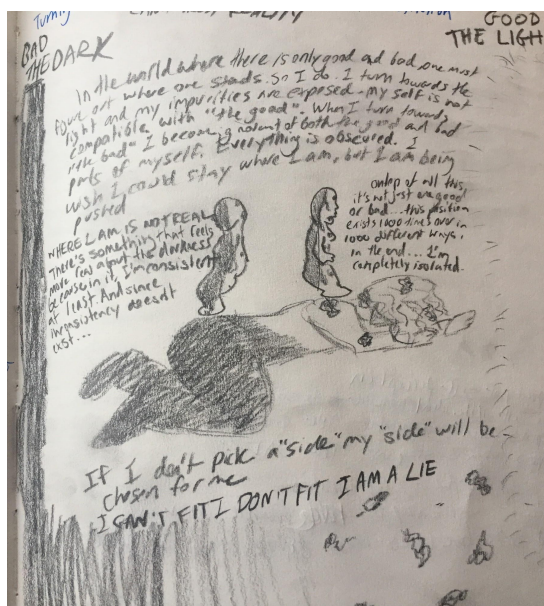 Turning
REALITY
BAD
THE DARK
GOOD
THE LIGH
In the world where there is only good and bad, one must
figure out where one stands. So I do. I turn towards the
light and my impurities are exposed - my self is not
compatible with "the good". When I turn towards
"the bad" I become ignorant of both the good and bad
parts of myself. Everything is obscured. I
wish I could stay where I am, but I am being
pushed
WHERE I AM IS NOT REAL
There's something that feels
more real about the darkness
because in it, I'm consistent
at least. And since
inconsistency doesn't
exist...
on top of all this,
it's not just one good
or bad... this position
exists 1000 times over in
1000 different ways.
in the end... I'm
completely isolated.
If I don't pick a "side" my "side" will be
chosen for me
I CAN'T FIT I DON'T FIT I AM A LIE